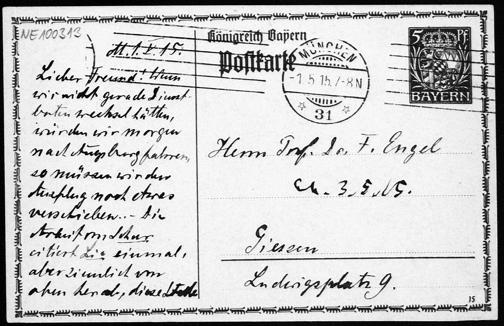 NE100313
M. 1. 5. 15.
Lieber Freund! Wenn
wir nicht gerade Dienst-
boten wechsel hätten,
würden wir morgen
nach Augsburg fahren,
so müssen wir den
Ausflug noch etwas
verschieben. - Die
Arbeit von
citiert Sie einmal,
aber ziemlich von
oben herab, diese Stelle
Königreich Bayern
Postkarte
MÜNCHEN
-1.5.15.7-8N
31
5 Pf
BAYERN
Herrn Prof. Dr. F. Engel
3.5.15.
Giessen
Ludwigsplatz 9.
15